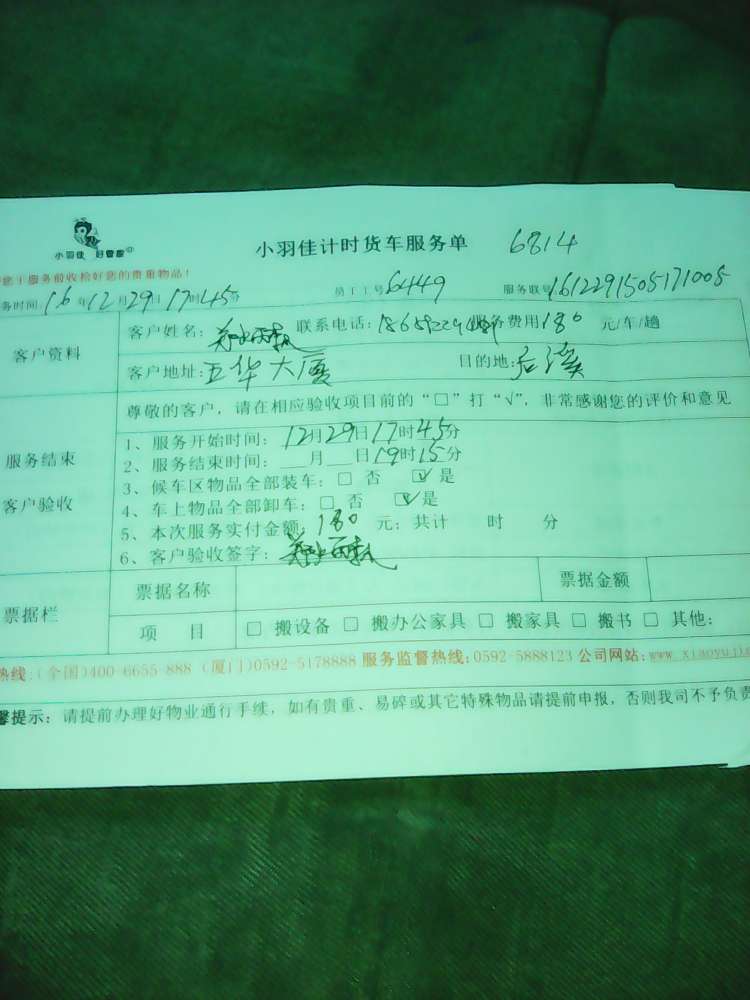 小羽佳 好管家
小羽佳计时货车服务单 6814
您于服务前收检好您的贵重物品!
务时间: 16年12月29日17时45分 员工工号6449 服务联号1612291505171005
客户资料
客户姓名: 联系电话: 服务费用180 元/车/趟
客户地址: 五华大厦 目的地:
服务结束
客户验收
尊敬的客户,请在相应验收项目前的“□”打“√”,非常感谢您的评价和意见
1、服务开始时间: 12月29日17时45分
2、服务结束时间: __月__日19时15分
3、候车区物品全部装车: □ 否 ☑ 是
4、车上物品全部卸车: □ 否 ☑ 是
5、本次服务实付金额: 180 元; 共计 时 分
6、客户验收签字:
票据栏
票据名称 票据金额
项 目 □ 搬设备 □ 搬办公家具 □ 搬家具 □ 搬书 □ 其他:
热线:(全国)400-6655-888 (厦门)0592-5178888 服务监督热线:0592-5888123 公司网站:www.xiaoyuji
馨提示: 请提前办理好物业通行手续,如有贵重、易碎或其它特殊物品请提前申报,否则我司不予负责